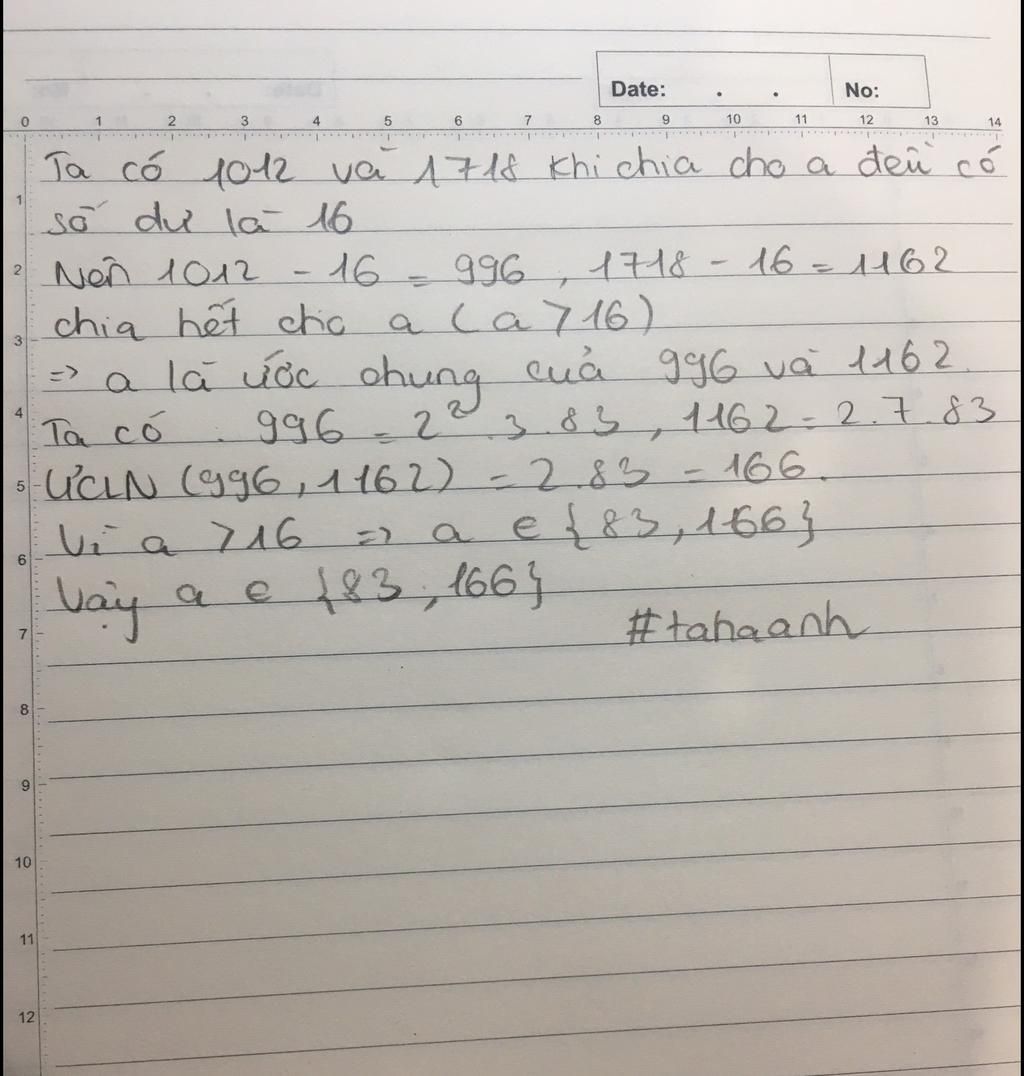 Date: . . No:
0 1 2 3 4 5 6 7 8 9 10 11 12 13 14
Ta có 1012 và 1718 khi chia cho a đều có
1
số dư là 16
2 Nên 1012 - 16 = 996, 1718 - 16 = 1162
chia hết cho a (a > 16)
3
=> a là ước chung của 996 và 1162.
4
Ta có . 996 = 2².3.83, 1162 = 2.7.83
5 ƯCLN (996, 1162) = 2.83 = 166.
Vì a > 16 => a e {83, 166}
6
Vậy a e {83, 166}
7 #tahaanh
8
9
10
11
12